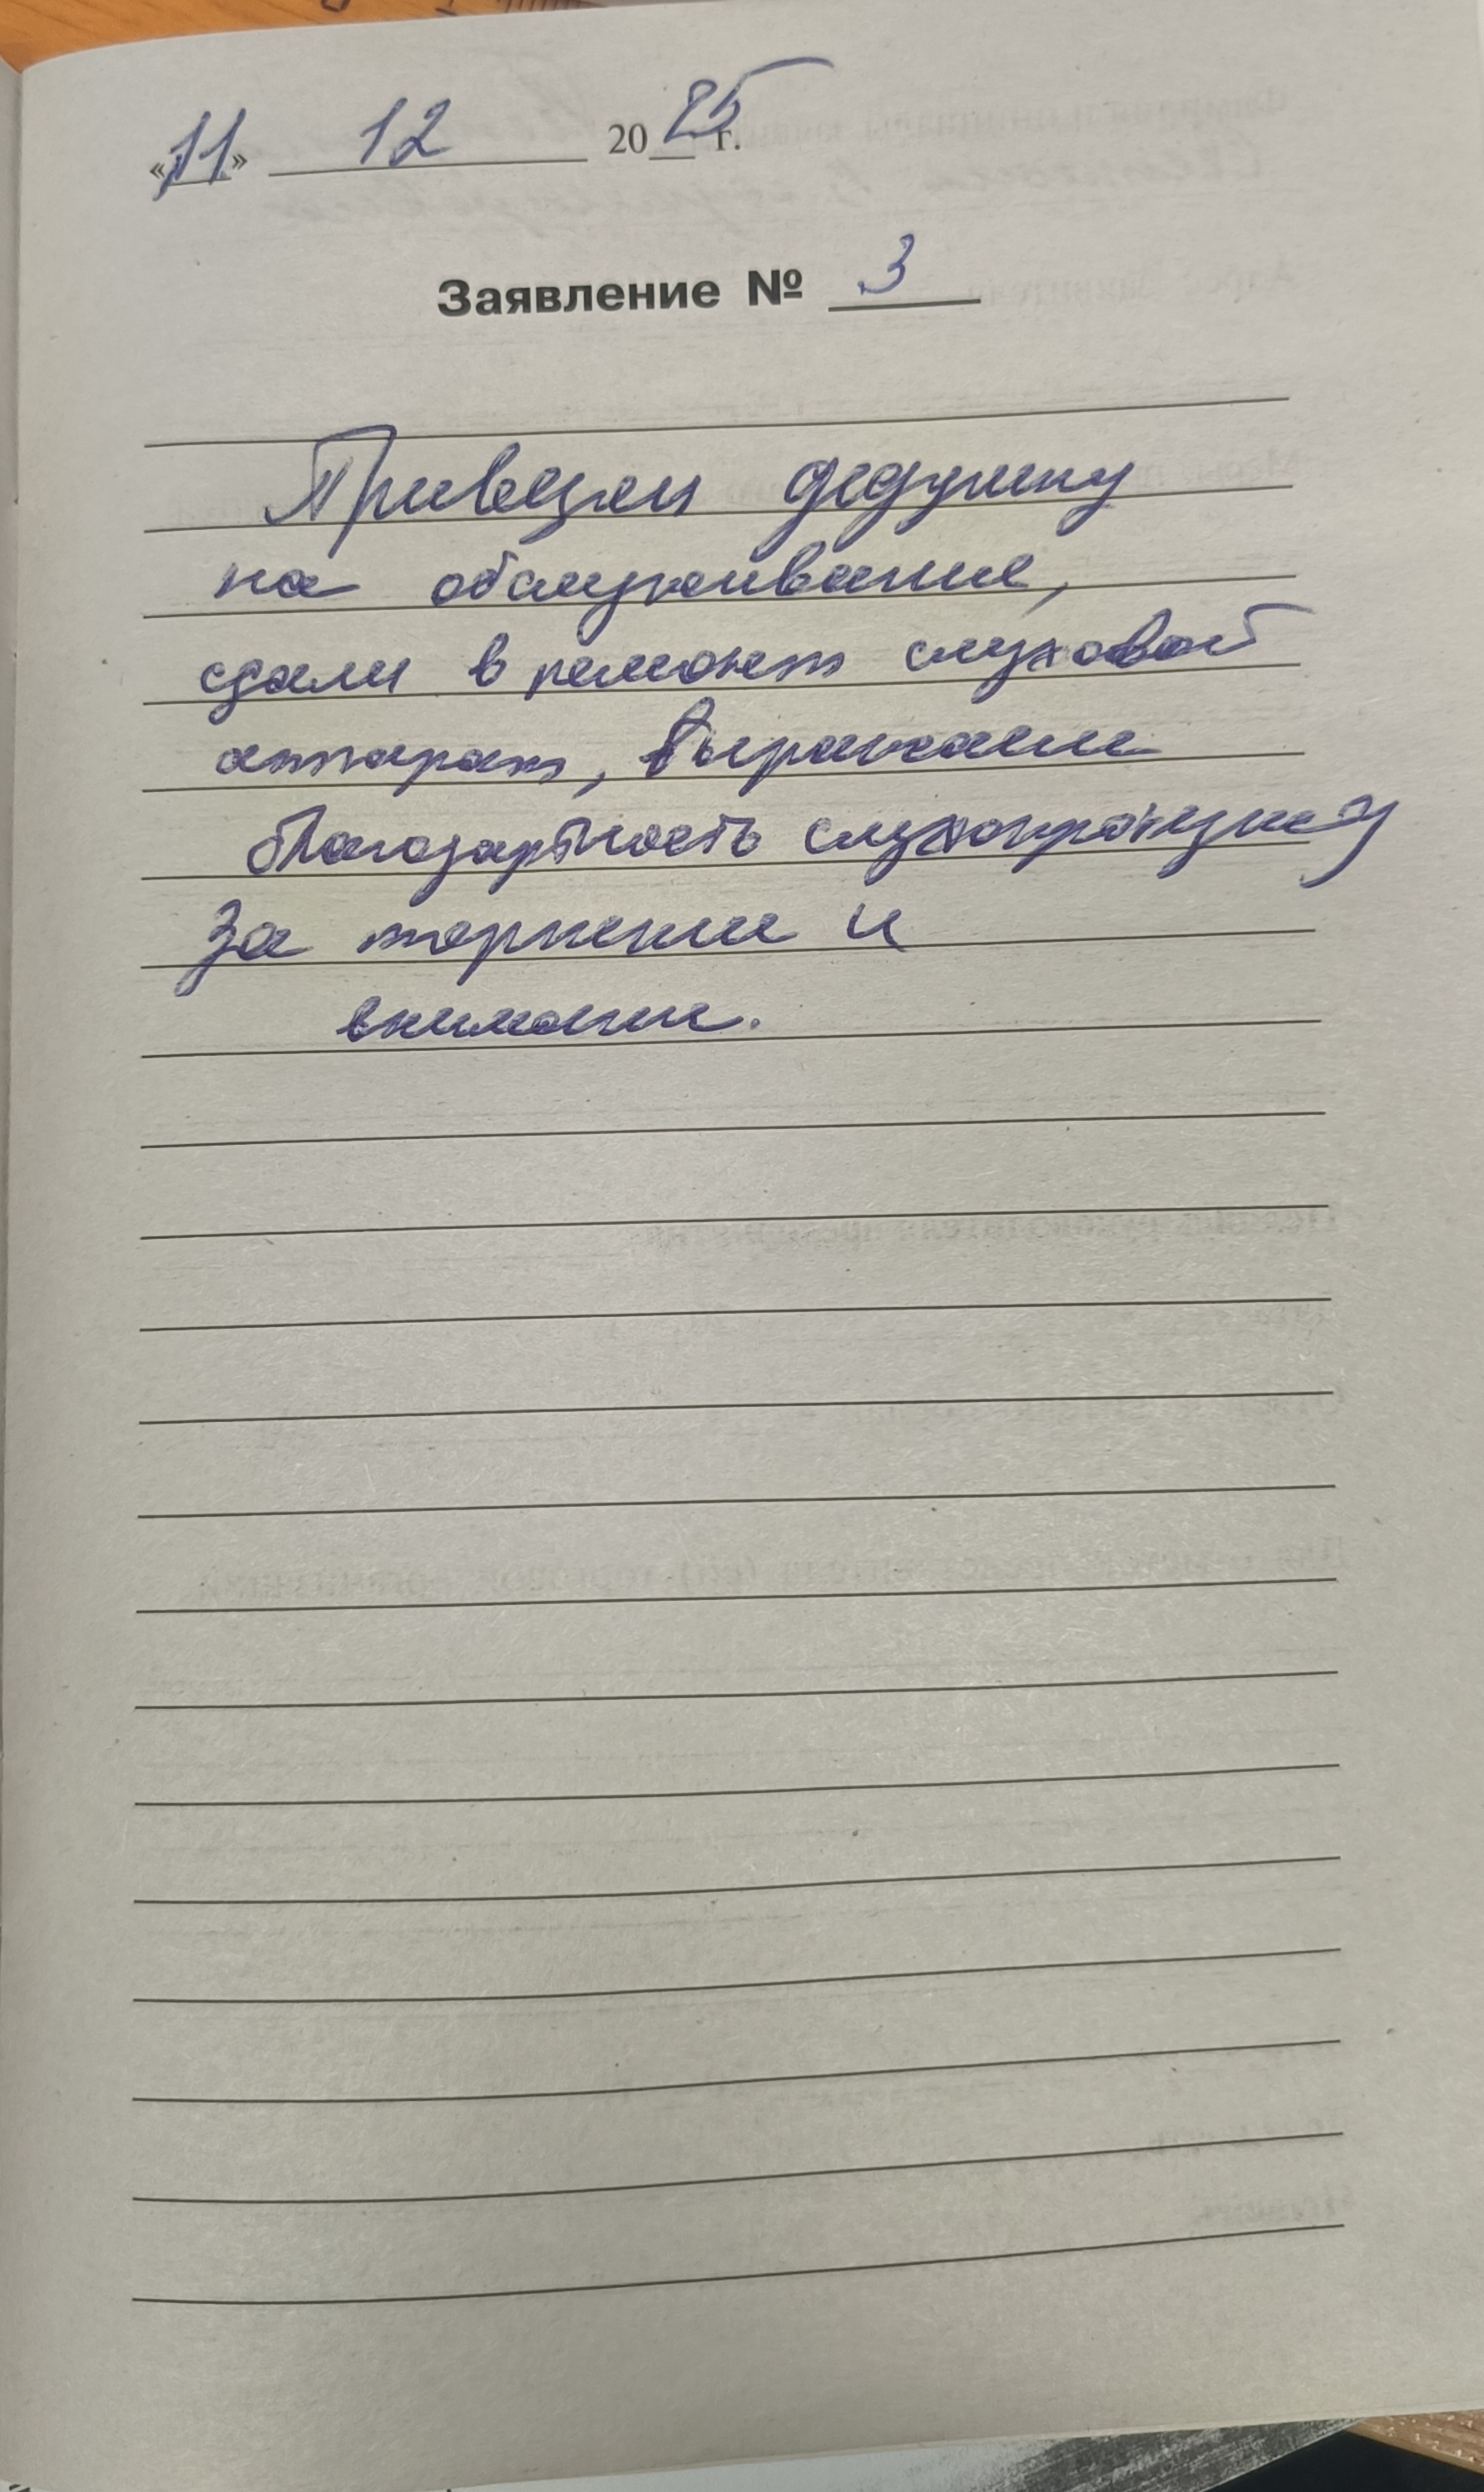 «11» 12 2025 г.
Заявление № 3
Привезли дедушку
на обслуживание,
сдали в ремонт слуховой
аппарат, выражаем
благодарность
за терпение и
внимание.